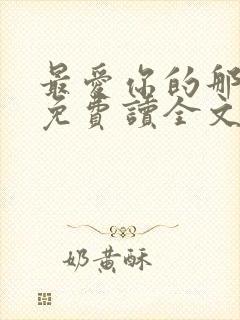 最愛你的那
免費讀全文
奶黃酥